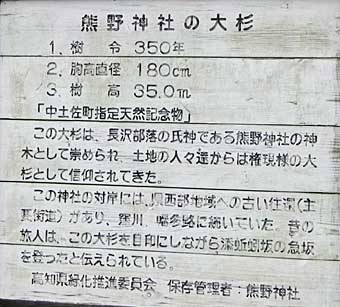 熊野神社の大杉
1. 樹 令 350年
2. 胸高直径 180cm
3. 樹 高 35.0m
「中土佐町指定天然記念物」
この大杉は、長沢部落の氏神である熊野神社の神
木として崇められ、土地の人々達からは権現様の大
杉として信仰されてきた。
この神社の対岸には、県西部地域への古い往還(主
要街道)があり、窪川、幡多路に続いていた。昔の
旅人は、この大杉を目印にしながら添蚯蚓坂の急坂
を登ったと伝えられている。
高知県緑化推進委員会 保存管理者:熊野神社